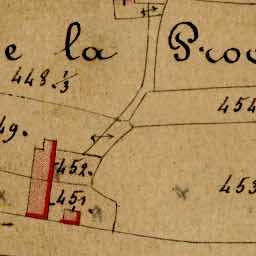 e la Pro
448.⅓
454
49.
452.
453
451.